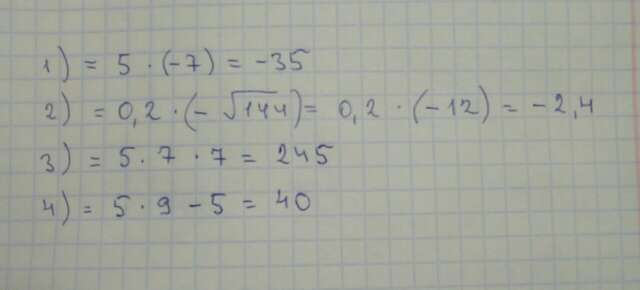 1) = 5 · (-7) = -35
2) = 0,2 · (- √144) = 0,2 · (-12) = -2,4
3) = 5 · 7 · 7 = 245
4) = 5 · 9 - 5 = 40